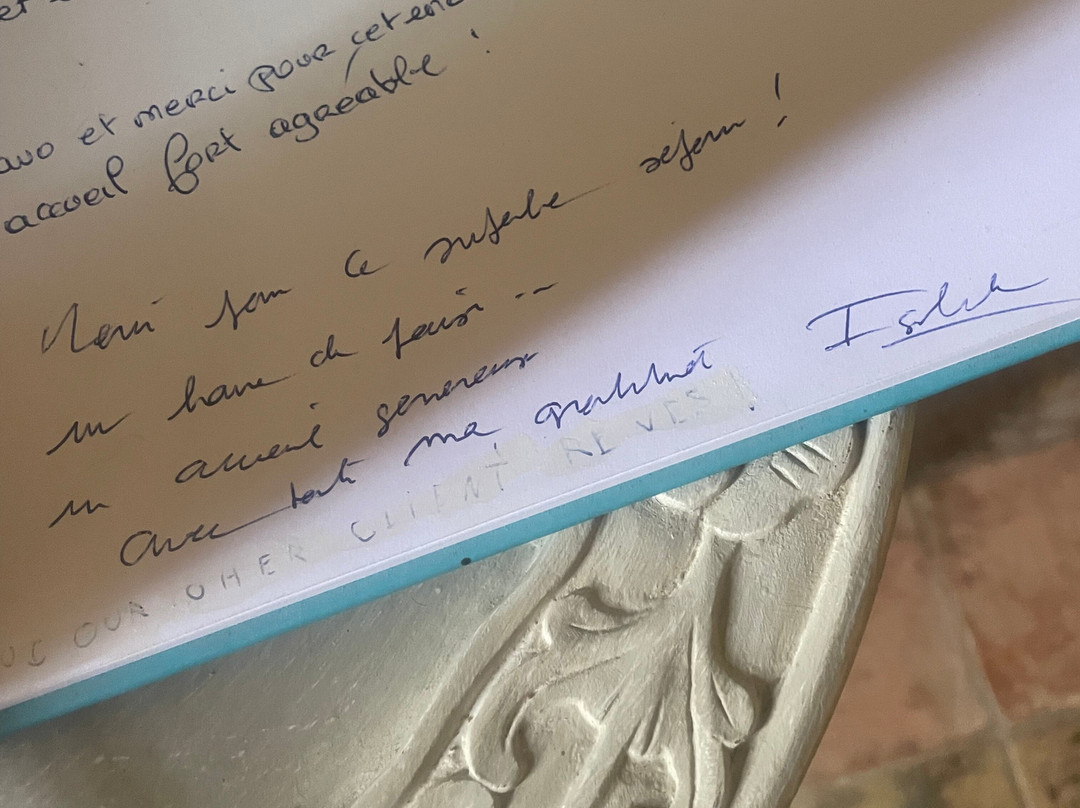 et
avo et merci pour cet
accueil fort agréable !
Merci pour ce superbe séjour !
un havre de paix --
un accueil genereux
Avec toute ma gratitude
Isabelle
OUR CHER CLIENT REVES